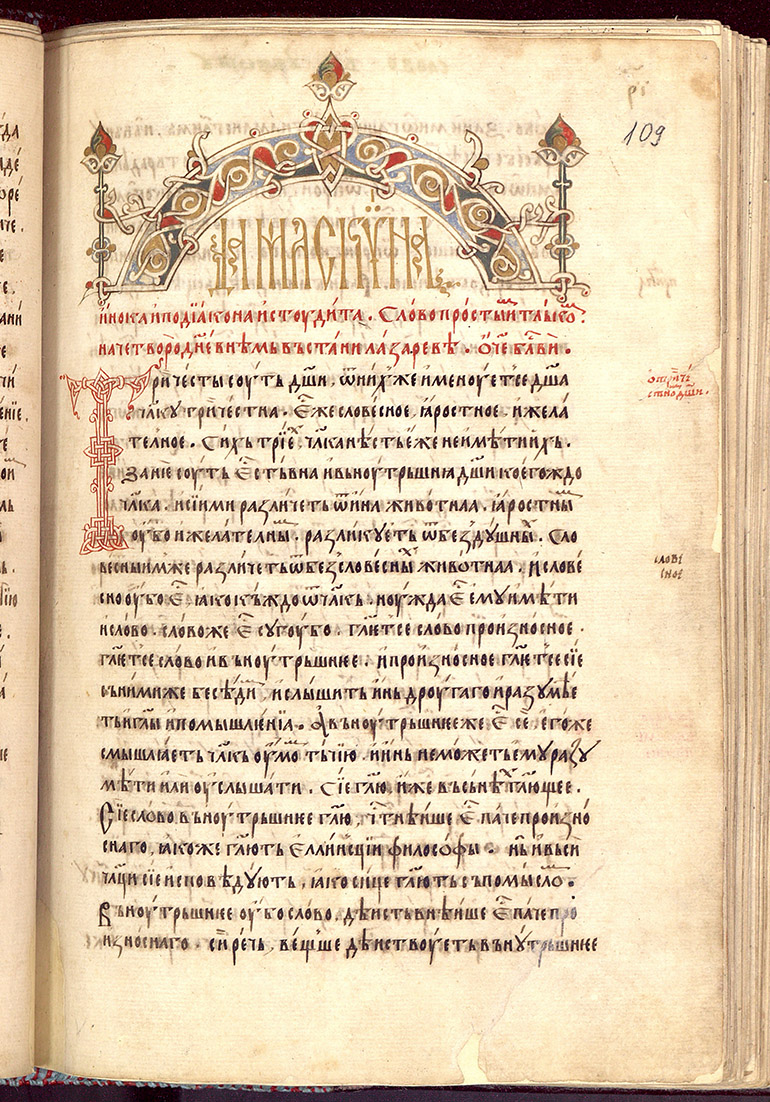 109
ДАМАСКИНА
инока и подїакона и стоудита. Слово простым їазыком.
на четвородневнѣмь въстани лазаревѣ. Ѻч҃е бл҃ви.
Тричесты соуть дш҃и, ѿ нихже именоуетсе дш҃а
чл҃кꙋ тричестна. Єже словесное, ꙗростное. и жела
телное. Сихъ трїех, чл҃ка нѣсть еже не имѣти ихъ.
Зане соуть єстьвна и вьноутрьшниа дш҃и коегождо
чл҃ка. и сїими различеть ѿ ина животнаа. ꙗростны
оубо и желателны. разликꙋеть ѿ без дꙋшных. Сло
весныимже различеть ѿ бесловесных животнаа. И слове
сно оубо є. ꙗко къждо ѿ чл҃кь. ноужда є емꙋ имѣти
и слово. слово же є сꙋгоубо. гл҃етсе слово произносное.
гл҃етсе слово и вьноутрьшнее. и произносное гл҃етсе сїе
сьнимиже бесѣди, и слышить инь дроугаго и разꙋмѣе
ть и гл҃ы и помышленїа. А вьноутрьшнее же є се. егоже
смышлꙗеть чл҃кь оумо тьчїю. и инь не можеть емꙋ разꙋ
мѣти или оуслышати. Сїе гл҃ю, иже вь сьнѣ гл҃ющее.
Сїе слово вьноутрьшнее гл҃ю, чт҃нѣише є паче произно
снаго, ꙗкоже гл҃ють Єллинсцїи философы. нн҃ѣ и вьси
чл҃ци сїе исповѣдують, ꙗко сице гл҃ють сьпомысло.
Вьноутрьшнее оубо слово, дѣиствьнѣише є паче про
износнаго. сирѣчь, вещьше дѣиствоуеть вьнꙋтрьшнее
слове
сное